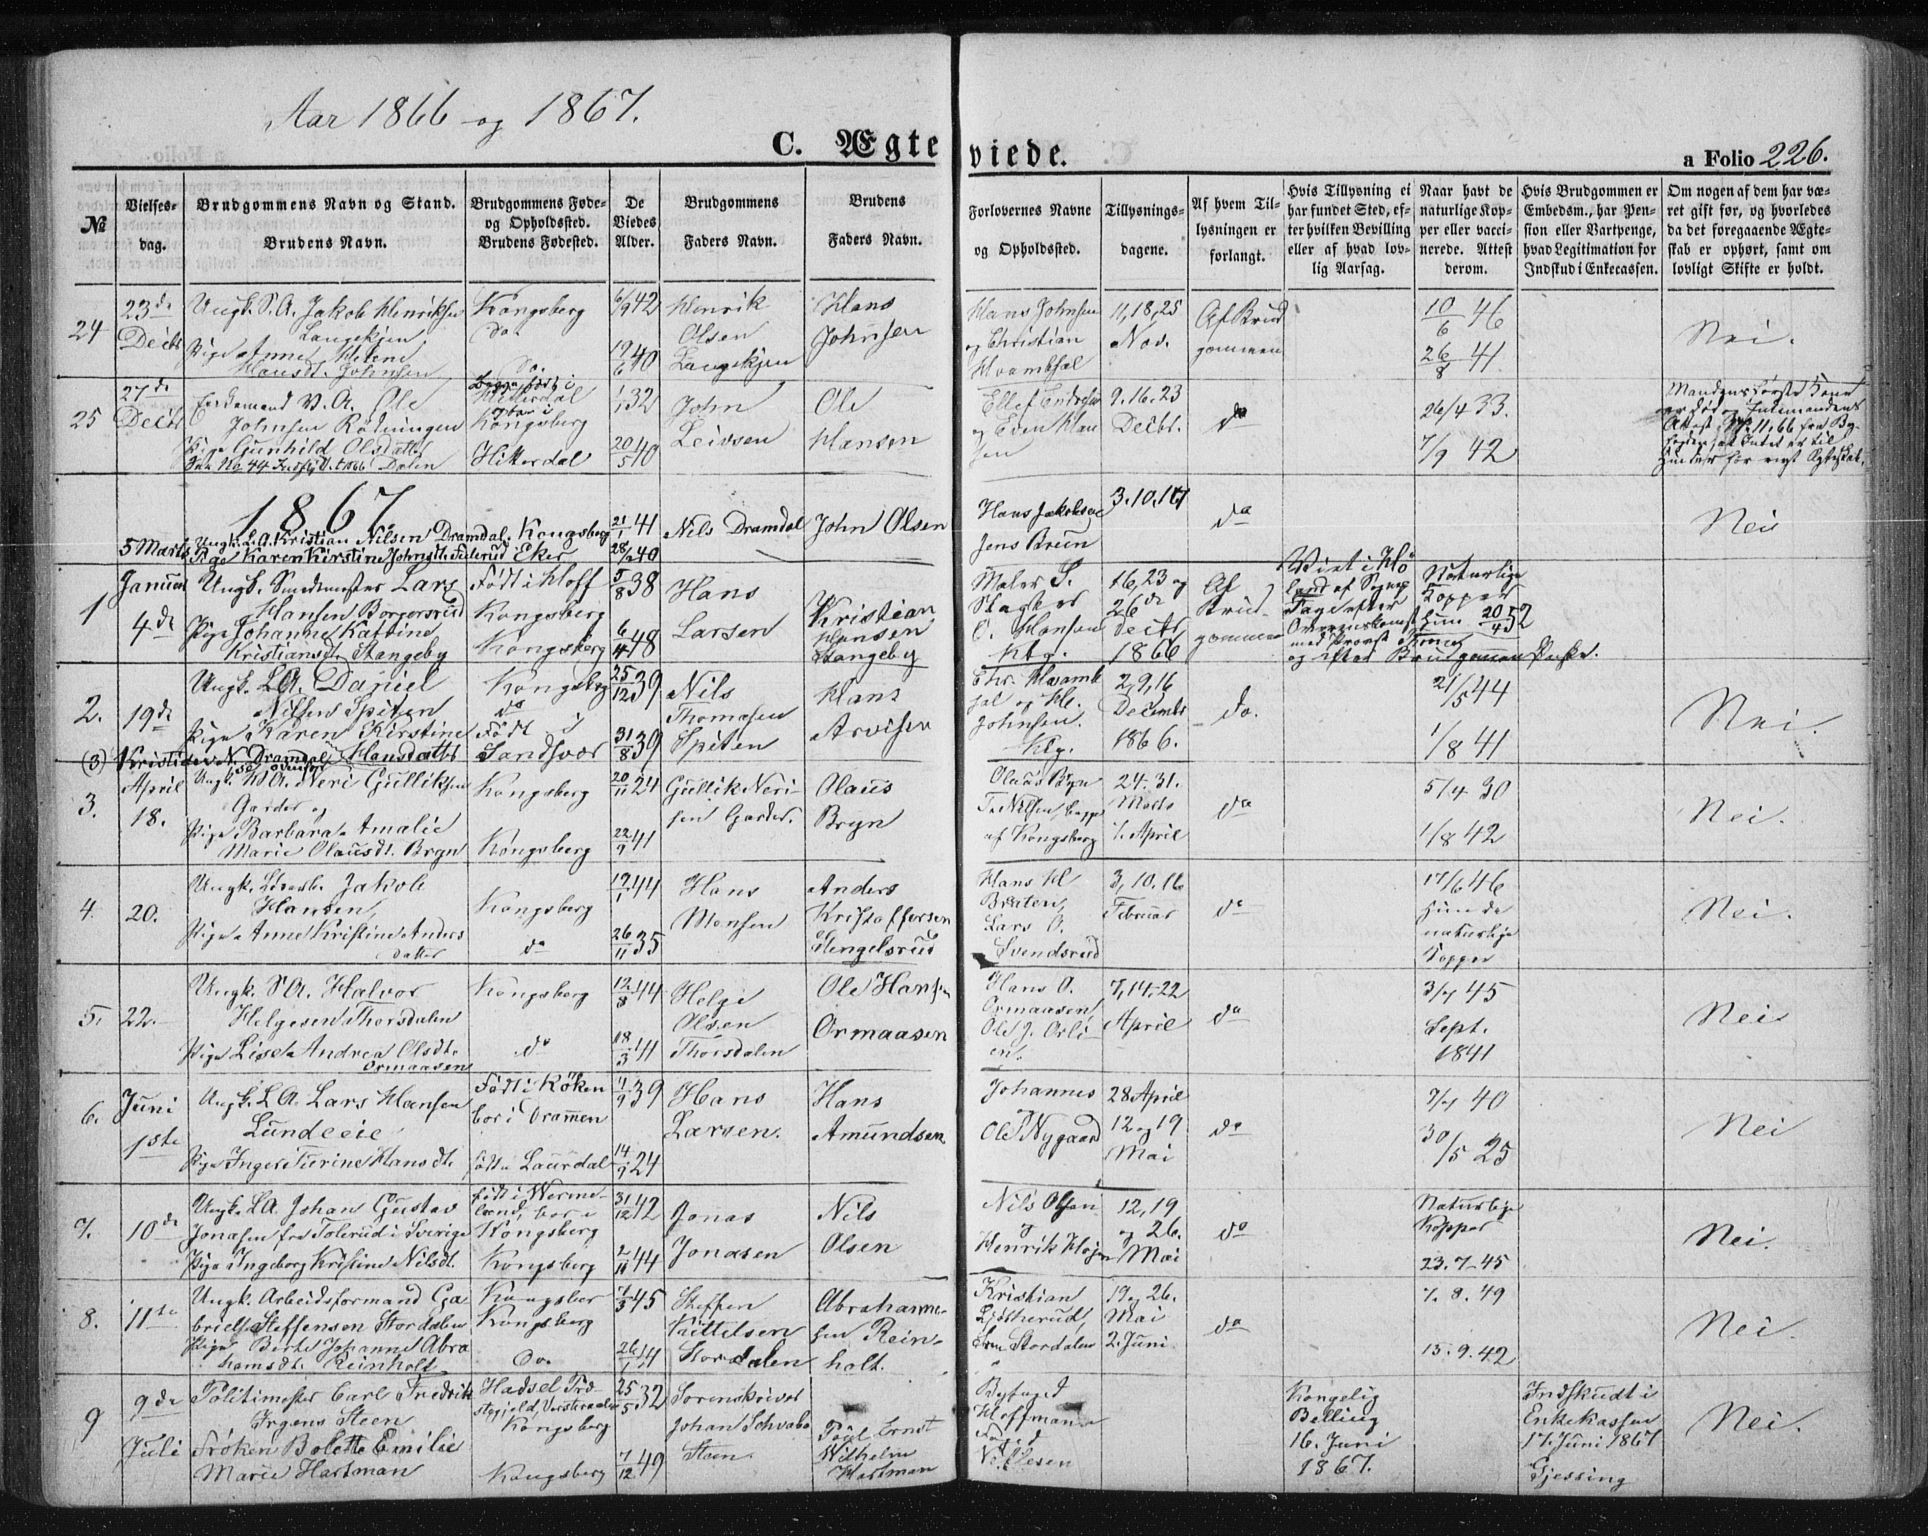 Aar 1866 og 1867.
C. Ægteviede.
a Folio 226.
№
Vielses-
dag.
Brudgommens Navn og Stand.
Brudens Navn.
Brudgommens Føde-
og Opholdssted.
Brudens Fødested.
De
Viedes
Alder.
Brudgommens
Faders Navn.
Brudens
Faders Navn.
Forlovernes Navne
og Opholdssted.
Tillysnings-
dagene.
Af hvem Til-
lysningen er
forlangt.
Hvis Tillysning ei
har fundet Sted, ef-
ter hvilken Bevilling
eller af hvad lov-
lig Aarsag.
Naar havt de
naturlige Kop-
per eller vacci-
nerede. Attest
derom.
Hvis Brudgommen er
Embedsm., har Pen-
sion eller Vartpenge,
hvad Legitimation for
Indskud i Enkecassen.
Om nogen af dem har væ-
ret gift før, og hvorledes
da det foregaaende Ægte-
skab er ophørt, samt om
lovligt Skifte er holdt.
24
23de
Decbr
Ungk. S.A. Jakob Henriksen
Langekjen
Pige Anne Helene
Hansdt. Johnsen
Kongsberg
do
Do.
6/9 42
19/6 40
Henrik
Olsen
Langekjen
Hans
Johnsen
Hans Johnsen
og Christian
11, 18, 25
Nov.
Af Brud
gommen
10/6 46
26/8 41
Nei.
25
27de
Decbr
V.A. Ole
Johnsen Rödningen
Pige Gunhild Olsdatter
Dalen
Begge født i
Hitterdal
Kongsberg
Hitterdal
1/1 32
20/5 40
John
Leivsen
Ole
Hansen
Ellef Endresen
og Even Han
sen
9. 16. 23
Decbr.
do
26/4 33.
7/9 42
Mandens første Kone
er død og
1867
5 Marts
Ungk. L.A. Kristian Nilsen Dramdal.
Pige Karen Kirstine Johnsdt.
Kongsberg
Eker
21/1 41
28/2 40
Nils Dramdal
John Olsen
Hans Jakobsen
Jens Brun
3. 10. 17
do
Nei
1
Januar
4de
Ungk. Smedmester Lars
Hansen Borgersrud
Pige Johanne Katrine
Kristiansdt. Stangeby
Født i Hoff
Kongsberg
Kongsberg
5/8 38
6/4 48
Hans
Larsen
Kristian
Hansen
Stangeby
Maler S.
O. Hansen
Kbg.
16, 23 og
26de
Decbr
1866
Af
Brud-
gommen
Viet i
land af Sogne-
efter
Overenskomst
med Provst
og efter Brudgommen
Naturlige
Kopper
Hun
2.
19de
Ungk. L.A. Daniel
Nilsen Spiten
Pige Karen Kirstine
Hansdatter
Kongsberg
do
Født i
Sandsvær
25/12 39
31/8 39
Nils
Thomasen
Spiten
Hans
Arvisen
Chr. Hvamb
sal og H.
Johnsen.
Kbg.
2, 9, 16
Decembr
1866.
do.
21/5 44
1/8 41
Nei.
(3) Kristian N. Dramdal
se ovenfor
3.
April
18.
Ungk. Neri Gulliksen
Garder og
Pige Barbara Amalie
Marie Olausdt. Bryn
Kongsberg
Kongsberg
20/11 24
22/9 41
Gullik Neri-
sen Garder.
Olaus
Bryn
Olaus Bryn
T. Nilsen
af Kongsberg
24. 31.
Marts
7. April
do
5/4 30
1/8 42
Nei.
4.
20.
Ungk. Jakob
Hansen,
Pige Anne Kristine Anders
datter
Kongsberg
do
19/1 44
26/11 35
Hans
Monsen
Anders
Kristoffersen
Hengelsrud
Hans H
Braten,
Lars O.
Svendsrud
3, 10. 16
Februar
do
17/6 46
Hun de
naturlige
Kopper
Nei.
5.
22.
Ungk. S.A. Halvor
Helgesen Thorsdalen
Pige Lise Andrea Olsdt.
Ormaasen
Kongsberg
do
12/8 44
18/3 41
Helge
Olsen
Thorsdalen
Ole Hansen
Ormaasen
Hans O.
Ormaasen,
Ole J. Orli-
en.
7, 14. 22
April
do
3/7 45
Sept.
1841
Nei
6.
Juni
1ste
Ungk. L.A. Lars Hansen
Lundeeie
Pige Inger Turine Hansdt.
Født i Röken
bor i Drammen
født i Laurdal
4/9 39
14/9 24
Hans
Larsen.
Hans
Amundsen
Johannes
Ole Nygaard
28 April
12 og 19
Mai
do
7/7 40
30/5 25
Nei
7.
10de
Ungk. L.A. Johan Gustav
Jonasen fra Tolerud i Sverige
Pige Ingeborg Kristine Nilsdt.
født i Werme-
land, bor i
Kongsberg
Kongsberg
31/12 42
2/11 44
Jonas
Jonasen
Nils
Olsen
Nils Olsen
og
Henrik
12, 19
og 26.
Mai
do
Naturlige
Kopper
23. 7. 45
Nei.
8.
11te
Ungk. Arbeidsformand Ga
briel Steffensen Stordalen
Pige Berte Johanne Abra
hamsdt. Reinholt
Kongsber
Kongsberg
Do.
7/3 45
26/1 41
Steffen
Kittelsen
Stordalen
Abrahamme-
sen Rein-
holt.
Kristian
Ljösterud,
Stordalen
19 og 26.
Mai
2. Juni
do
7. 8. 49
15. 9. 42
Nei.
9
9de
Juli
Politimester Carl Fredrik
Irgens Steen
Frøken Bolette Emilie
Marie Hartman
Hadsel Præ-
stegjeld, Vesteraalen
Kongsberg
Kongsberg
25/5 32
7/12 49
Sorenskriver
Johan Schvabe
Steen
Foged Ernst
Wilhelm
Hartman
Byfoged
Hoffman
Foged
Kongelig
Belling
16. Juni
1867.
Indskudt i
Enkekassen
17. Juni 1867
Gjessing
Nei.